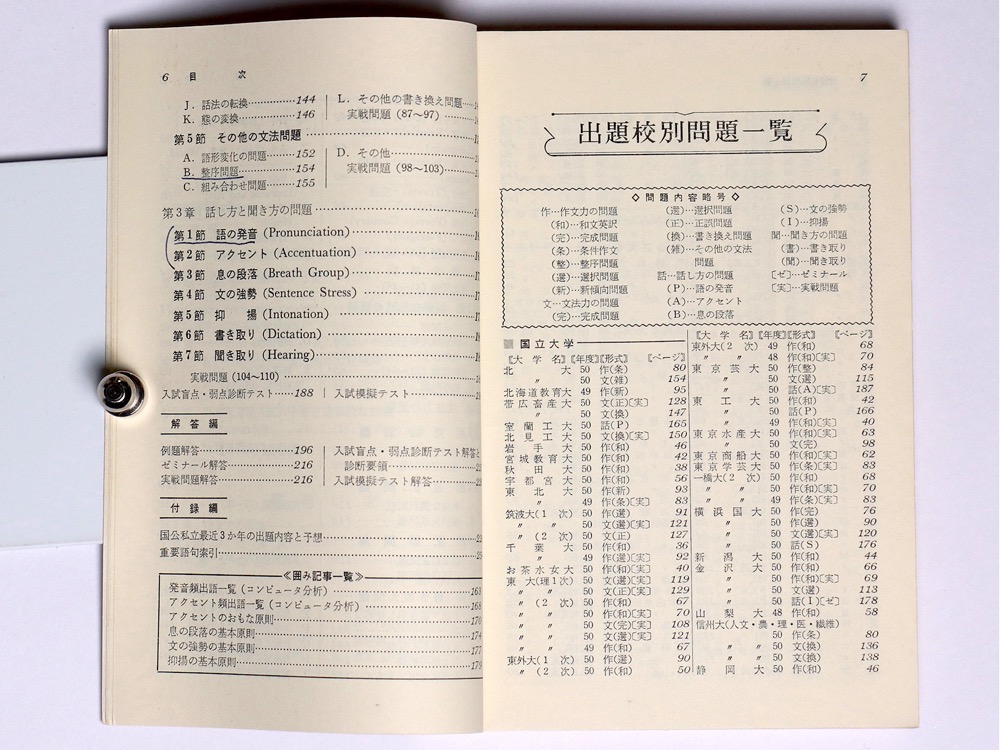 6 目 次
J. 話法の転換……………144
K. 態の変換……………146
L. その他の書き換え問題
実戦問題 (87〜97)
第5節 その他の文法問題
A. 語形変化の問題………152
B. 整序問題………154
C. 組み合わせ問題………155
D. その他
実戦問題 (98〜103)
第3章 話し方と聞き方の問題
第1節 語の発音 (Pronunciation)
第2節 アクセント (Accentuation)
第3節 息の段落 (Breath Group)
第4節 文の強勢 (Sentence Stress)
第5節 抑 揚 (Intonation)
第6節 書き取り (Dictation)
第7節 聞き取り (Hearing)
実戦問題 (104〜110)
入試盲点・弱点診断テスト……188
入試模擬テスト
解答編
例題解答………196
ゼミナール解答………216
実戦問題解答………216
入試盲点・弱点診断テスト解答と
診断要領
入試模擬テスト解答
付録編
国公私立最近3か年の出題内容と予想
重要語句索引
≪囲み記事一覧≫
発音頻出語一覧 (コンピュータ分析)………163
アクセント頻出語一覧 (コンピュータ分析)………168
アクセントのおもな原則………170
息の段落の基本原則………174
文の強勢の基本原則………177
抑揚の基本原則………179
7
出題校別問題一覧
◇問題内容略号◇
作…作文力の問題
(和)…和文英訳
(完)…完成問題
(条)…条件作文
(整)…整序問題
(選)…選択問題
(新)…新傾向問題
文…文法力の問題
(完)…完成問題
(選)…選択問題
(正)…正誤問題
(換)…書き換え問題
(雑)…その他の文法
問題
話…話し方の問題
(P)…語の発音
(A)…アクセント
(B)…息の段落
(S)…文の強勢
(I)…抑揚
聞…聞き方の問題
(書)…書き取り
(聞)…聞き取り
[ゼ]…ゼミナール
[実]…実戦問題
国立大学
〖大 学 名〗〖年度〗〖形式〗 〖ページ〗
北 大 50 作(条) 80
〃 50 文(雑) 154
北海道教育大 49 作(新) 95
帯広畜産大 50 文(正)[実] 128
〃 50 文(換) 147
室蘭工大 50 話(P) 165
北見工大 50 文(換)[実] 150
岩手大 50 作(和) 46
宮城教育大 50 作(和) 42
秋田大 50 作(和) 38
宇都宮大 50 作(和) 56
東北大 50 作(新) 93
〃 49 作(条)[実] 83
筑波大(1次) 50 作(選) 91
〃 〃 50 文(選)[実] 121
〃 (2次) 50 文(正) 127
千葉大 50 作(和) 36
〃 49 作(選)[実] 92
お茶水女大 50 作(和)[実] 40
東 大(理1次) 50 文(選)[実] 119
〃 〃 50 文(正)[実] 129
〃 (2次) 50 作(和) 67
〃 〃 50 作(和)[実] 70
〃 〃 50 文(完)[実] 108
〃 〃 50 文(選)[実] 121
〃 〃 49 作(和) 67
東外大(1次) 50 作(選) 90
〃 (2次) 50 作(和) 50
〖大 学 名〗〖年度〗〖形式〗 〖ページ〗
東外大(2次) 49 作(和) 68
〃 〃 48 作(和)[実] 70
東京芸大 50 作(整) 84
〃 50 文(選) 115
〃 50 話(A)[実] 187
東工大 50 作(和) 42
〃 50 話(P) 166
〃 49 作(和)[実] 40
東京水産大 50 作(和)[実] 63
〃 50 文(完) 98
東京商船大 50 作(和)[実] 62
東京学芸大 50 作(条)[実] 83
一橋大(2次) 50 作(和) 68
〃 〃 50 作(和)[実] 70
〃 〃 49 作(条)[実] 83
横浜国大 50 作(完) 76
〃 50 作(選) 90
〃 50 文(選)[実] 120
〃 50 話(S) 176
新潟大 50 作(和) 44
金沢大 50 作(和) 66
〃 50 作(和)[実] 69
〃 50 文(選) 113
〃 50 話(I)[ゼ] 178
山梨大 48 作(和) 58
信州大(人文・農・理・医・繊維)
50 作(条) 80
〃 〃 50 文(換) 136
〃 〃 50 文(換) 138
静岡大 50 作(和) 46